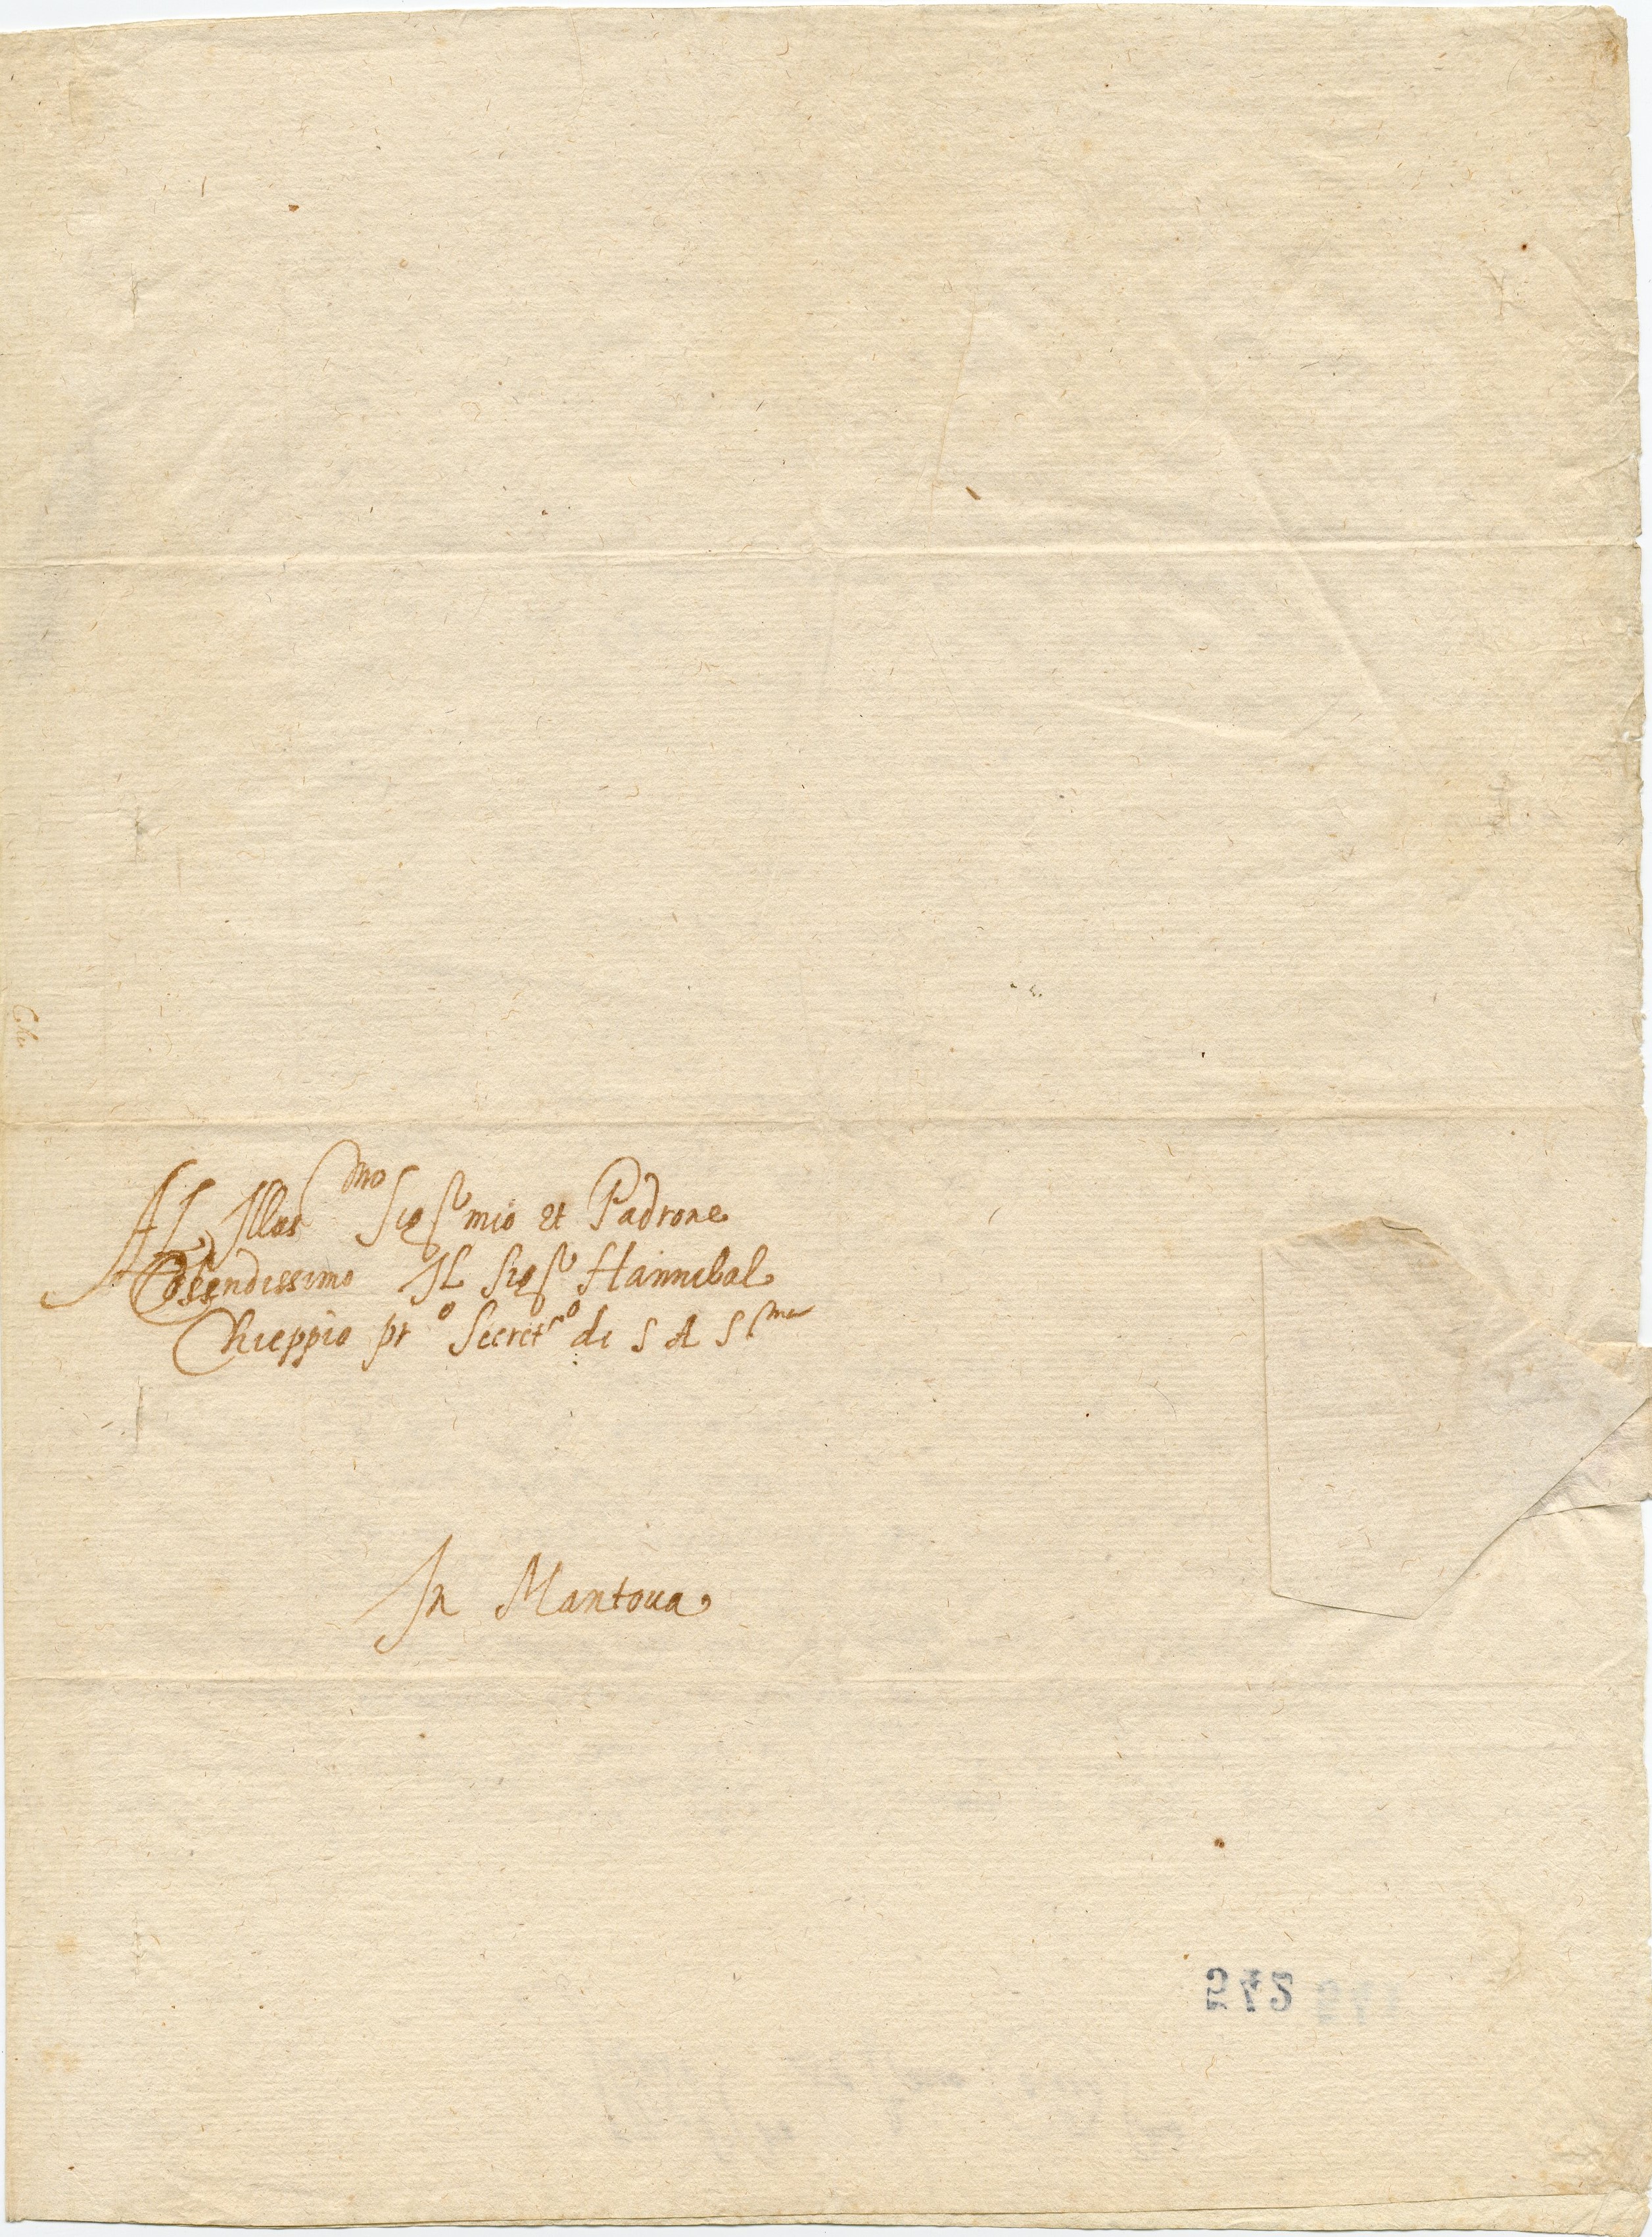 Ch.
Al Illus^mo Sig^r mio et Padrone
Oss^endissimo Il Sig^r Hannibal
Chieppio pr^o Secret^rio di S A S^ma
In Mantoua
542